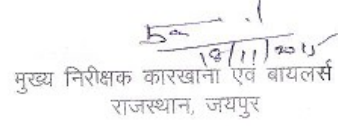 18/11/2015
मुख्य निरीक्षक कारखाना एवं बायलर्स
राजस्थान, जयपुर